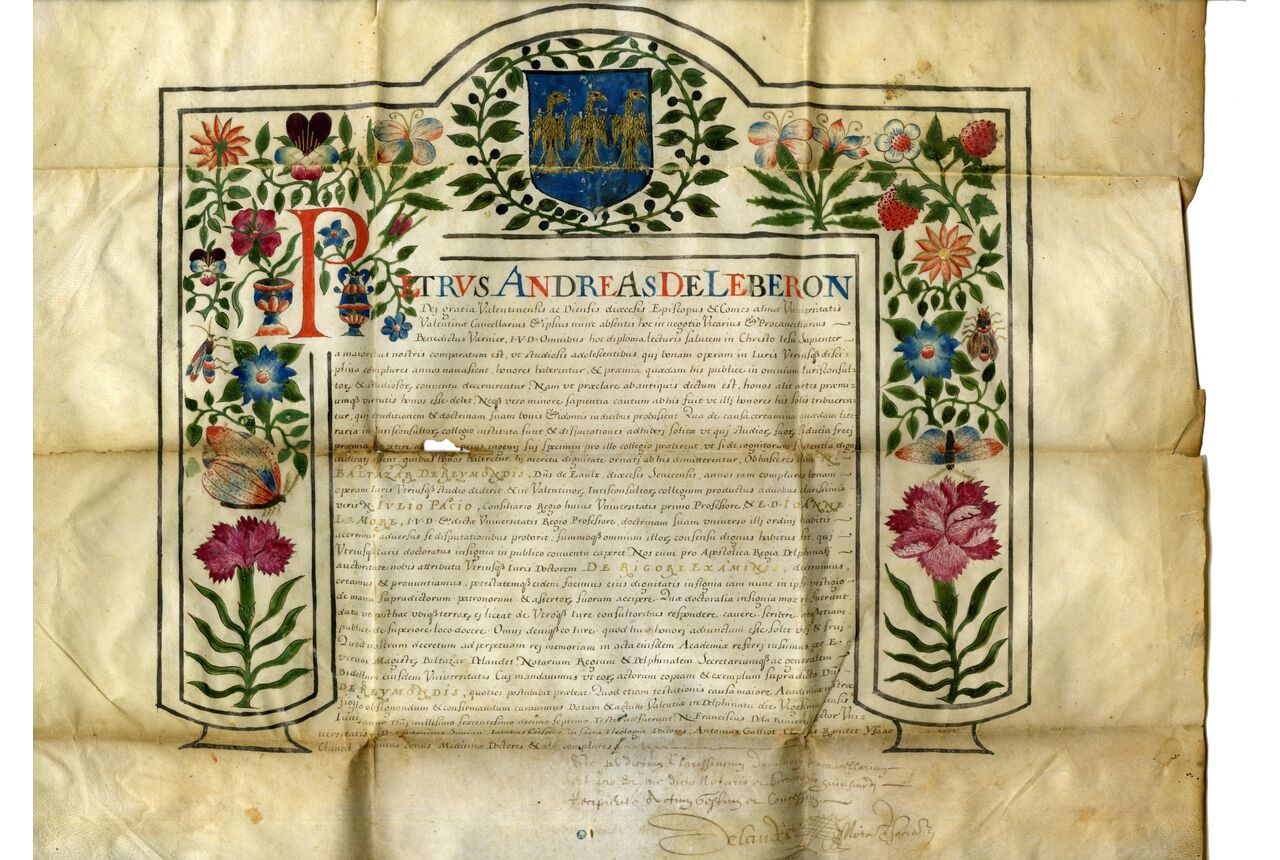 PETRVS ANDREAS DE LEBERON
Dei gratia Valentinensis ac Diensis diœcesis Episcopus & Comes almæ Vniversitatis
Valentinæ Cancellarius & ipsius nunc absentis hoc in negotio Vicarius & Procancellarius
Benedictus Varnier, I·V·D· Omnibus hoc diploma lecturis salutem in Christo Iesu Sapienter
a maioribus nostris comparatum est, vt studiosis adolescentibus qui bonam operam in Iuris Vtriusq; disci-
plina complures annos navassent, honores haberentur, & præmia quædam his publice in omnium Iurisconsul-
tor, & studiosor, conventu decernerentur. Nam vt præclare ab antiquis dictum est, honos alit artes præmi-
umq; virtutis honos esse debet. Neq; vero minore sapientia cautum ab his fuit vt illi honores his solis tribuerent
tur, qui eruditionem & doctrinam suam bonis & idoneis iudicibus probassent. Qua de causa certamina quædam litte
raria in Iurisconsultor, collegio instituta sunt & disputationes adhiberi solitæ vt qui studior, suor, fiducia freti
præmia ingenij sui specimen pro illo collegio præberent, vt si de cognitorum sententia digni
iudicati essent, quibus honos haberetur hi merita dignitate ornati ab his dimitterentur. Ob has res cum N.
BALTAZAR DE REYMONDIS, Dñs de Eaulx, diœcesis Senecensis, annos iam complures bonam
operam Iuris Vtriusq; studio dederit & in Valentinor, Iurisconsultor, collegium productus a duobus clarissimis
viris N. IVLIO PACIO, Consiliario Regio huius Vniversitatis primo Professore, & E·D· IOANNE
LE MORE, I·V·D· & dictæ Vniversitatis Regio Professore, doctrinam suam vniverso illi ordini habitis
acerrimis adversus se disputationibus probarit, summoq; omnium illor, consensu dignus habitus sit, qui
Vtriusq; Iuris doctoratus insignia in publico conventu caperet. Nos eum pro Apostolica Regia Delphinali
auctoritate nobis attributa Vtriusq; Iuris Doctorem DE RIGORE EXAMINIS, decernimus,
creamus & pronuntiamus, potestatemq; eidem facimus eius dignitatis insignia iam nunc in ipso vestigio
de manu supradictorum patronorum & assertor, suorum accipere. Quæ doctoralia insignia mox ei fuerunt
data vt posthac vbiq; terrar, ei liceat de Vtroq; Iure consultoribus respondere cavere scribere atq; etiam
publice de superiore loco docere. Omni deniq; eo Iure quod huic honori adiunctum esse solet vti & frui
Quod nostrum decretum ad perpetuam rei memoriam in acta eiusdem Academiæ referri iussimus per E
verum Magistr, Baltazar Delandes Notarium Regium & Delphinalem Secretariumq; ac generalem
Bidellum eiusdem Vniversitatis Cui mandavimus vt eor, actorum copiam & exemplum supradicto Dño
DE REYMONDIS, quoties postulabit præbeat. Quod etiam testationis causa maiore Academiæ nostræ
sigillo obsignandum & confirmandum curavimus Datum & actum Valentiæ in Delphinatu die Vigesima
Iunij anno Dñi millesimo sexcentesimo decimo septimo. Testes affuerunt N. Franciscus Dela Riviere Rector Vni-
versitatis in sacra Theologia Doctores, Antonius Galliot Rondet Ysaac
Medicinæ Doctores & alij complures
Sic per dictum Clarissimum Dominum Procancellarium
Et pro dicto Notario
Recipiente Actum Gestum et Concessum
Delandes